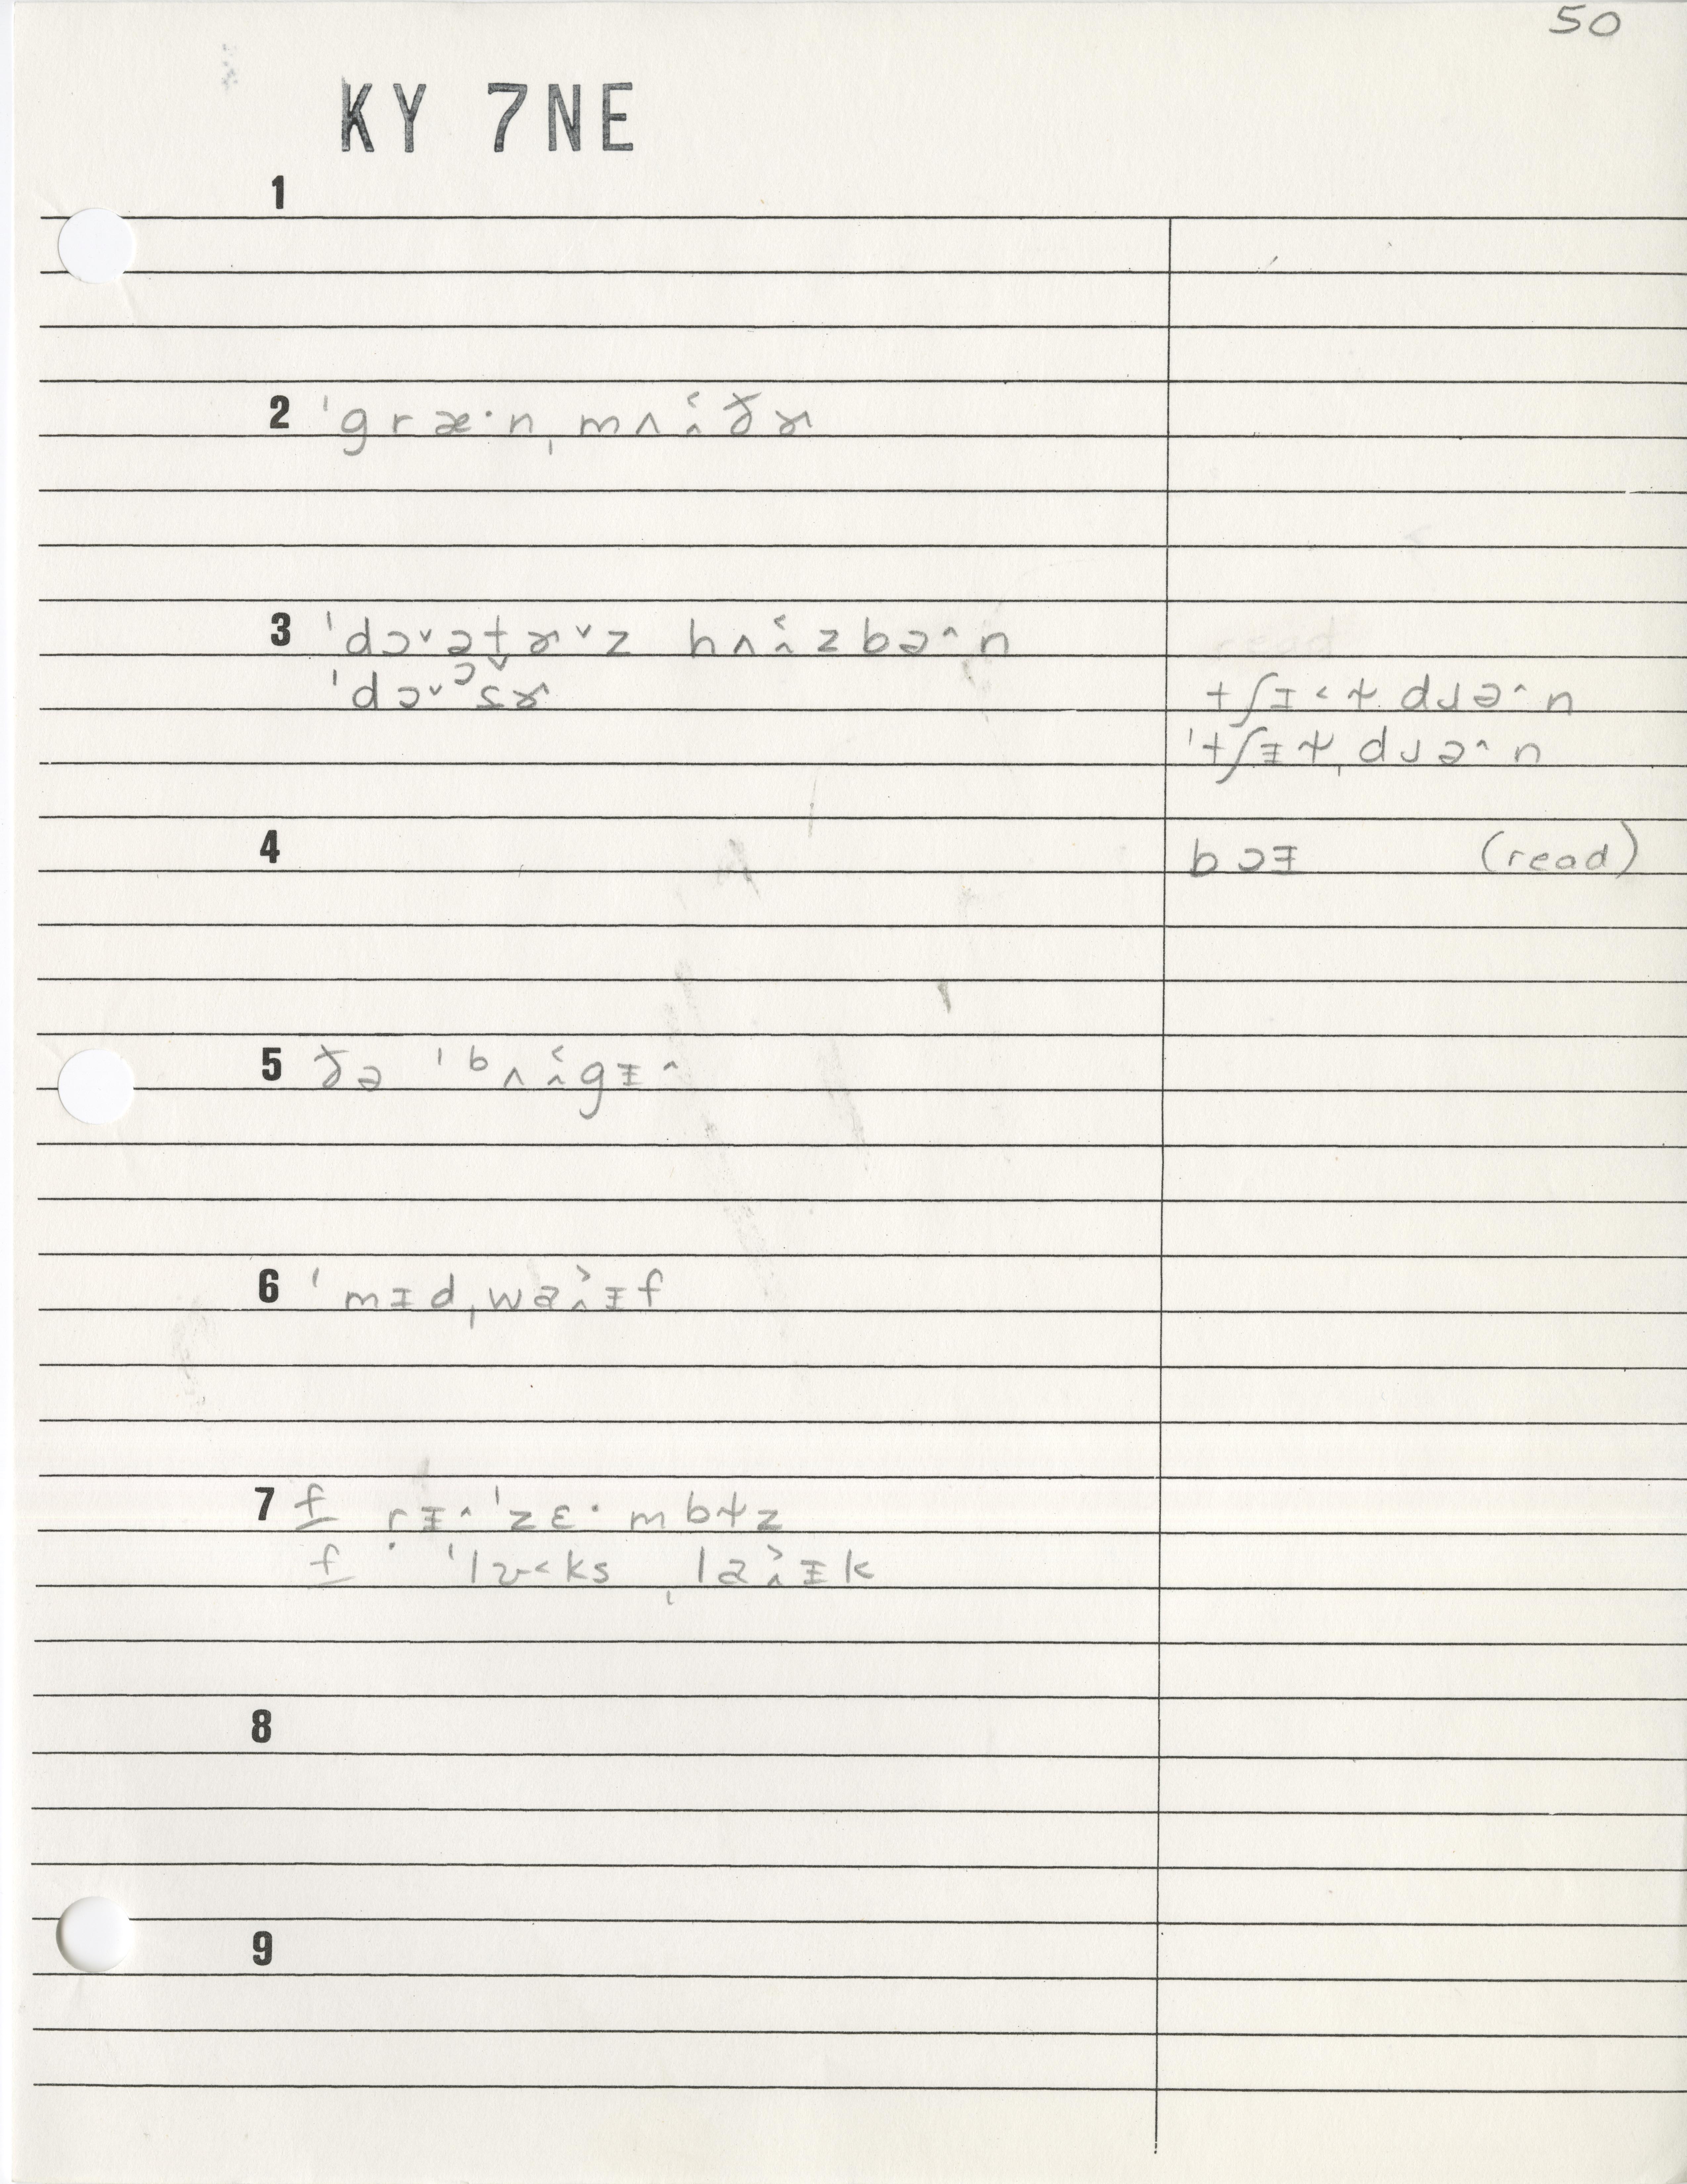 50
KY 7NE
1
2 ˈgræ·nˌmʌ˂̭ðɚ
3 ˈdɔ˅ətɚ˅z hʌ˂̭zbə^n
ˈdɔ˅ɔɾɚ
tʃɪ˂ɫdɹə^n
ˈtʃɪɫˌdɹə^n
4 bɔɪ (read)
5 ðə ˈbʌ˂̭gɪ^
6 ˈmɪdˌwa˃̭ɪf
7 f rɪ^ˈzɛ·mbɫz
f · ˈlʊ˂ks ˌla˃̭ɪk
8
9